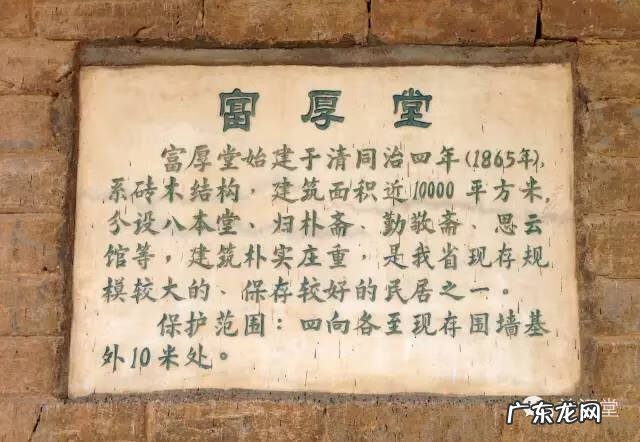 富厚堂
富厚堂始建于清同治四年(1865年),
系砖木结构，建筑面积近10000平方米，
分设八本堂、归朴斋、勤敬斋、思云
馆等，建筑朴实庄重，是我省现存规
模较大的、保存较好的民居之一。
保护范围：四向各至现存围墙基
外10米处。
堂
广东龙网